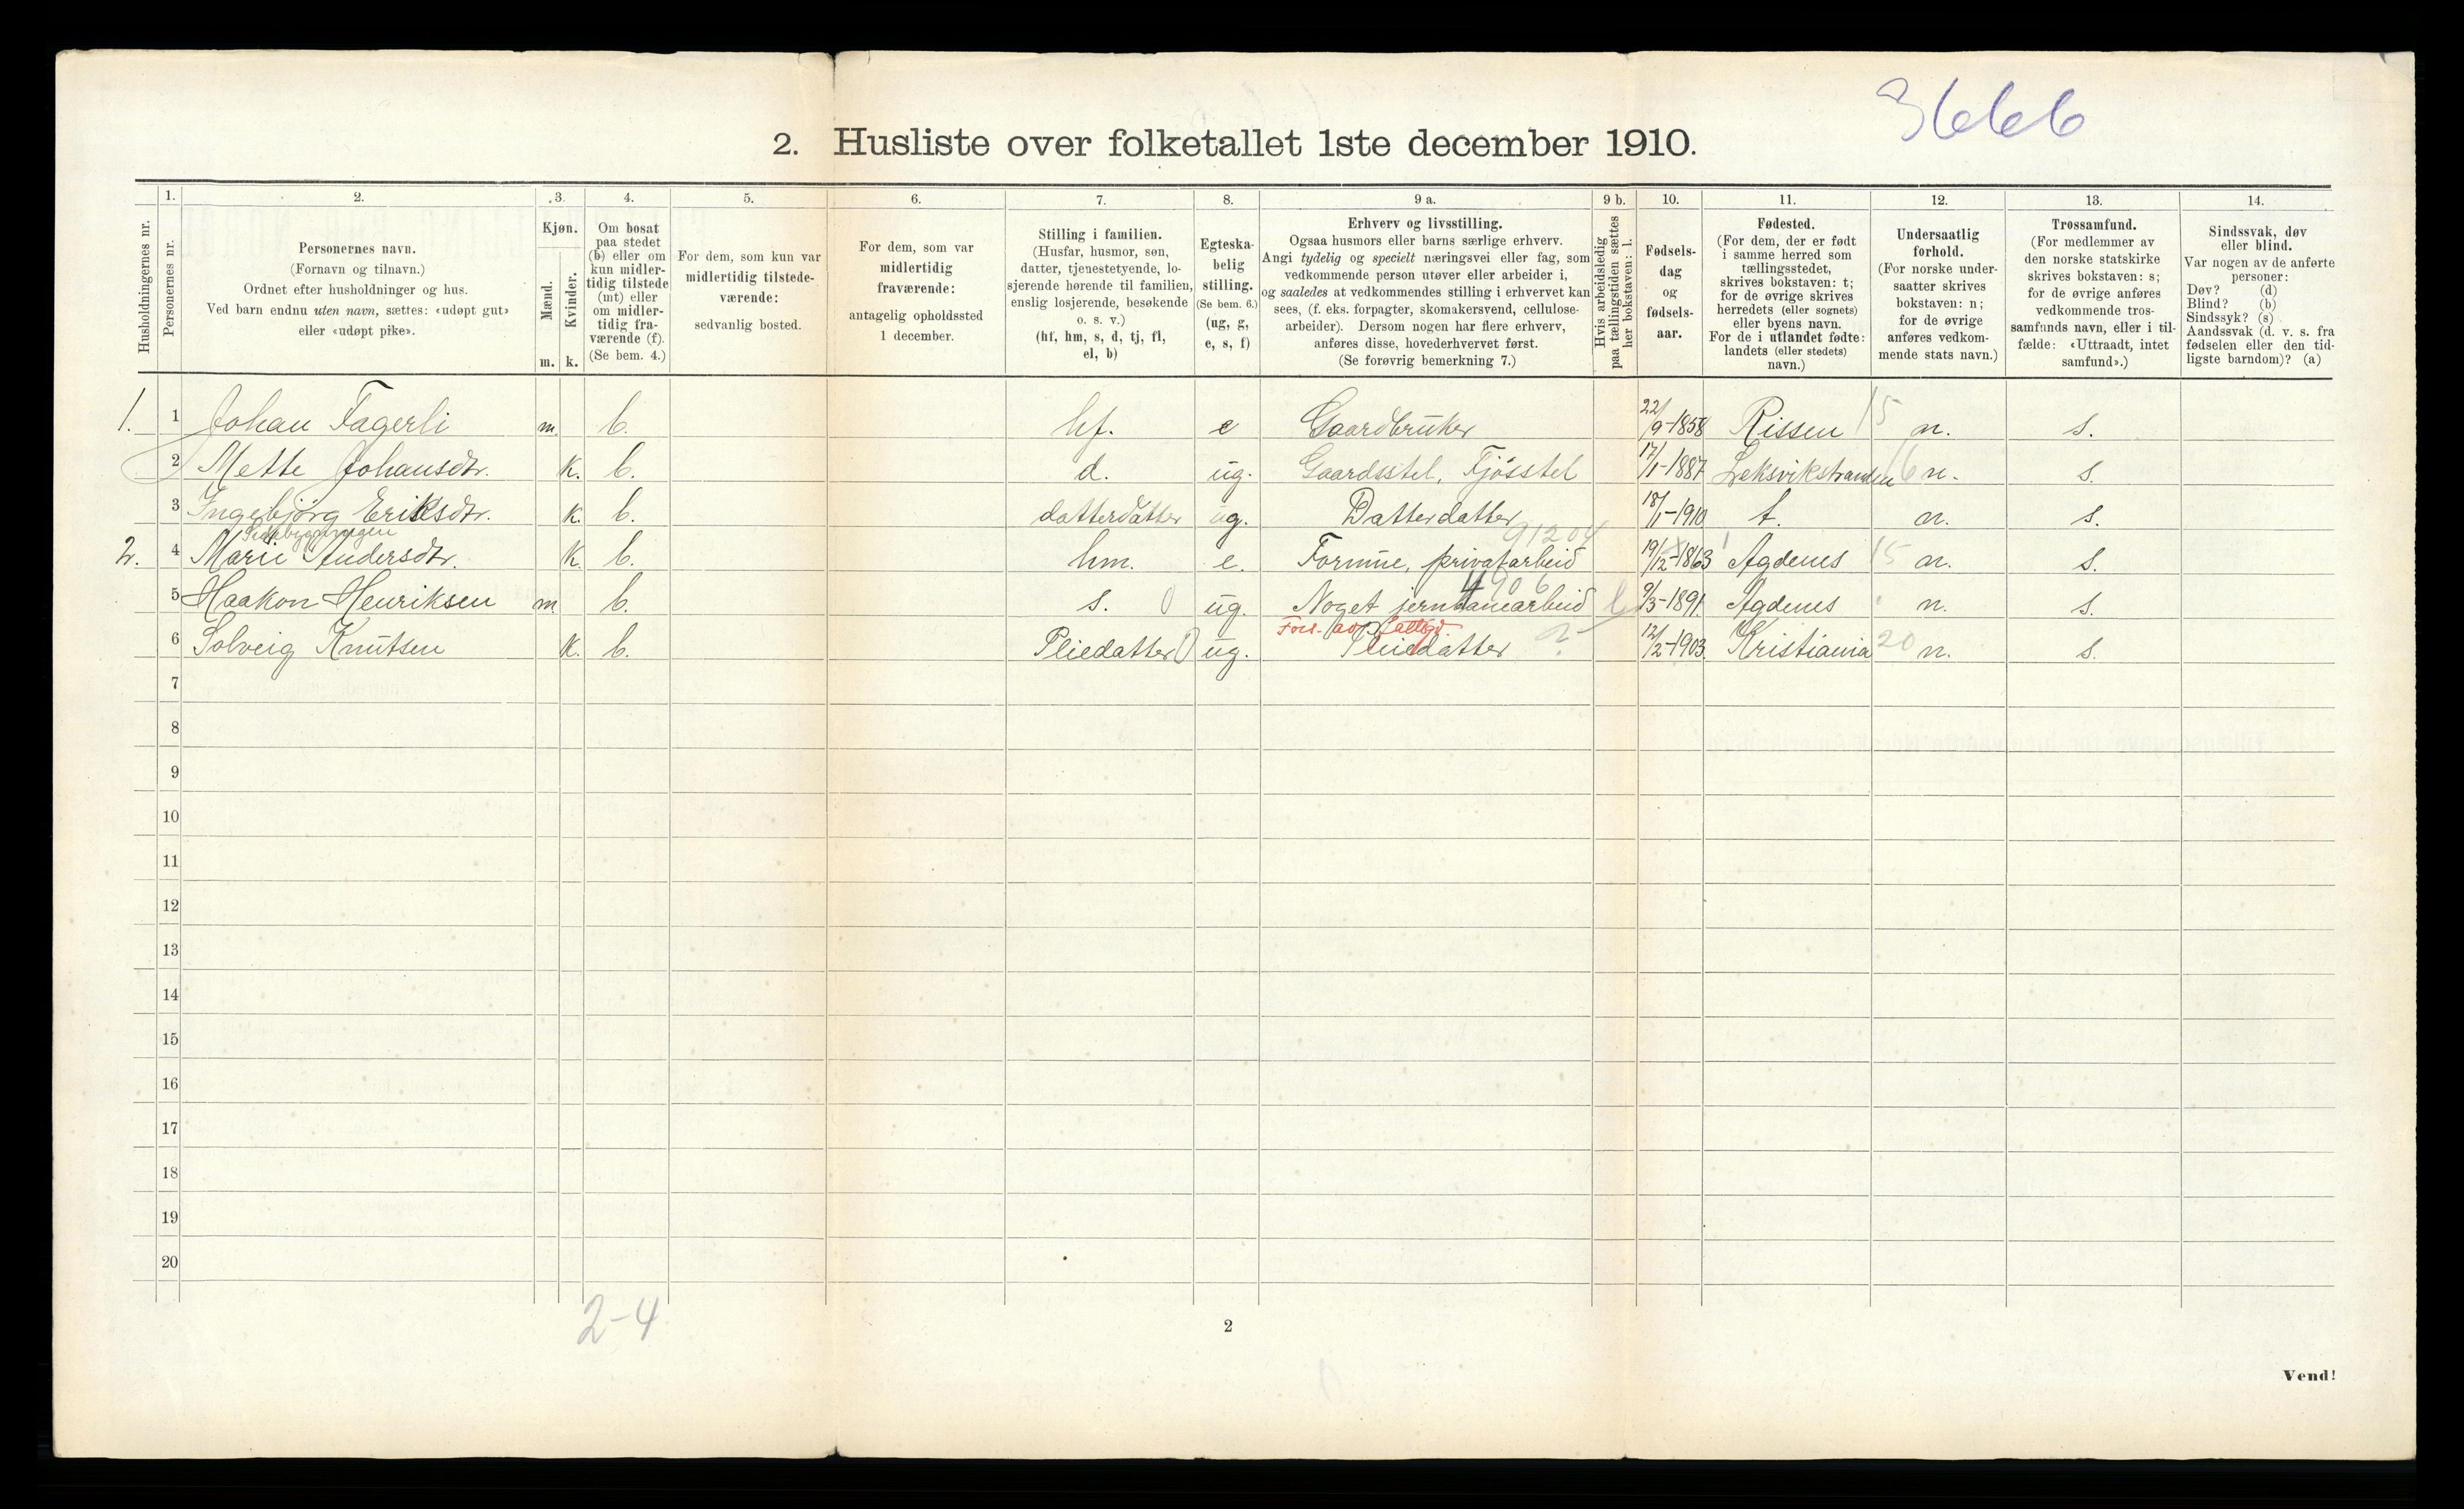 3666
2. Husliste over folketallet 1ste december 1910.
Husholdningernes nr.
1.
Personernes nr.
2.
Personernes navn.
(Fornavn og tilnavn.)
Ordnet efter husholdninger og hus.
Ved barn endnu uten navn, sættes: «udøpt gut»
eller «udøpt pike».
3.
Kjøn.
Mænd.
Kvinder.
m. k.
4.
Om bosat
paa stedet
(b) eller om
kun midler-
tidig tilstede
(mt) eller
om midler-
tidig fra-
værende (f).
(Se bem. 4.)
5.
For dem, som kun var
midlertidig tilstede-
værende:
sedvanlig bosted.
6.
For dem, som var
midlertidig
fraværende:
antagelig opholdssted
1 december.
7.
Stilling i familien.
(Husfar, husmor, søn,
datter, tjenestetyende, lo-
sjerende hørende til familien,
enslig losjerende, besøkende
o. s. v.)
(hf, hm, s, d, tj, fl,
el, b)
8.
Egteska-
belig
stilling.
(Se bem. 6.)
(ug, g,
e, s, f)
9 a.
Erhverv og livsstilling.
Ogsaa husmors eller barns særlige erhverv.
Angi tydelig og specielt næringsvei eller fag, som
vedkommende person utøver eller arbeider i,
og saaledes at vedkommendes stilling i erhvervet kan
sees, (f. eks. forpagter, skomakersvend, cellulose-
arbeider). Dersom nogen har flere erhverv,
anføres disse, hovederhvervet først.
(Se forøvrig bemerkning 7.)
9 b.
Hvis arbeidsledig
paa tællingstiden sættes
her bokstaven: l.
10.
Fødsels-
dag
og
fødsels-
aar.
11.
Fødested.
(For dem, der er født
i samme herred som
tællingsstedet,
skrives bokstaven: t;
for de øvrige skrives
herredets (eller sognets)
eller byens navn.
For de i utlandet fødte:
landets (eller stedets)
navn.)
12.
Undersaatlig
forhold.
(For norske under-
saatter skrives
bokstaven: n;
for de øvrige
anføres vedkom-
mende stats navn.)
13.
Trossamfund.
(For medlemmer av
den norske statskirke
skrives bokstaven: s;
for de øvrige anføres
vedkommende tros-
samfunds navn, eller i til-
fælde: «Uttraadt, intet
samfund».)
14.
Sindssvak, døv
eller blind.
Var nogen av de anførte
personer:
Døv? (d)
Blind? (b)
Sindssyk? (s)
Aandssvak (d. v. s. fra
fødselen eller den tid-
ligste barndom)? (a)
1. 1 Johan Fagerli m. b. hf. e Gaardbruker 22/9-1858 Rissen 15 n. s.
2 Mette Johansdtr. k. b. d. ug. Gaardsstel, Fjøsstel 17/1-1887 Leksvikstranden 16 n. s.
3 Ingebjørg Eriksdtr. k. b. datterdatter ug. Datterdatter 18/1-1910 t. n. s.
Sidebygningen 91204
2. 4 Marie Andersdtr. k. b. hm. e. Formue, privatarbeid 19/12-1863 Agdenes 15 n. s.
4906
5 Haakon Henriksen m. b. s. 0 ug. Noget jernbanearbeid l 9/3-1891. Agdenes n. s.
Fors. av fattigv.
6 Solveig Knutsen k. b. Pliedatter 0 ug. Pliedatter ? 12/2-1903. Kristiania 20 n. s.
7
8
9
10
11
12
13
14
15
16
17
18
19
20
2-4
2
Vend!